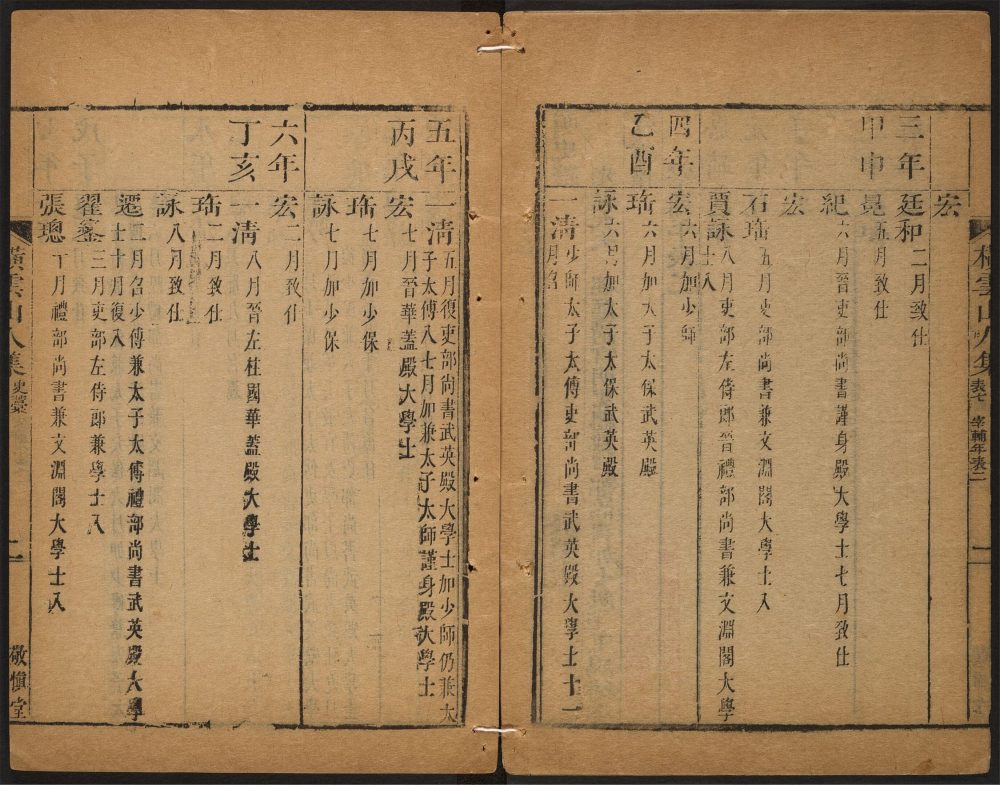 宏
三年
甲申
廷和二月致仕
冕五月致仕
紀六月晉吏部尚書謹身殿大學士七月致仕
宏
石珤五月吏部尚書兼文淵閣大學士入
賈詠八月吏部左侍郎晉禮部尚書兼文淵閣大學
士入
四年
乙酉
宏六月加少師
珤六月加太子太保武英殿
詠六月加太子太保武英殿
一清少師太子太傅吏部尚書武英殿大學士十一
月召
五年
丙戌
一清五月復吏部尚書武英殿大學士加少師仍兼太
子太傅入七月加兼太子太師謹身殿大學士
宏七月晉華蓋殿大學士
珤七月加少保
詠七月加少保
六年
丁亥
宏二月致仕
一清八月晉左柱國華蓋殿大學士
珤二月致仕
詠八月致仕
遷二月召少傅兼太子太傅禮部尚書武英殿大學
士十月復入
翟鑾三月吏部左侍郎兼學士入
張璁十月禮部尚書兼文淵閣大學士入
橫雲山人集
史藁
表七
宰輔年表二
一
橫雲山人集
史藁
二
敬慎堂